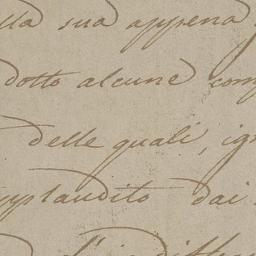 lla sua appena
dotto alcune com
delle quali, ig
applaudito dai